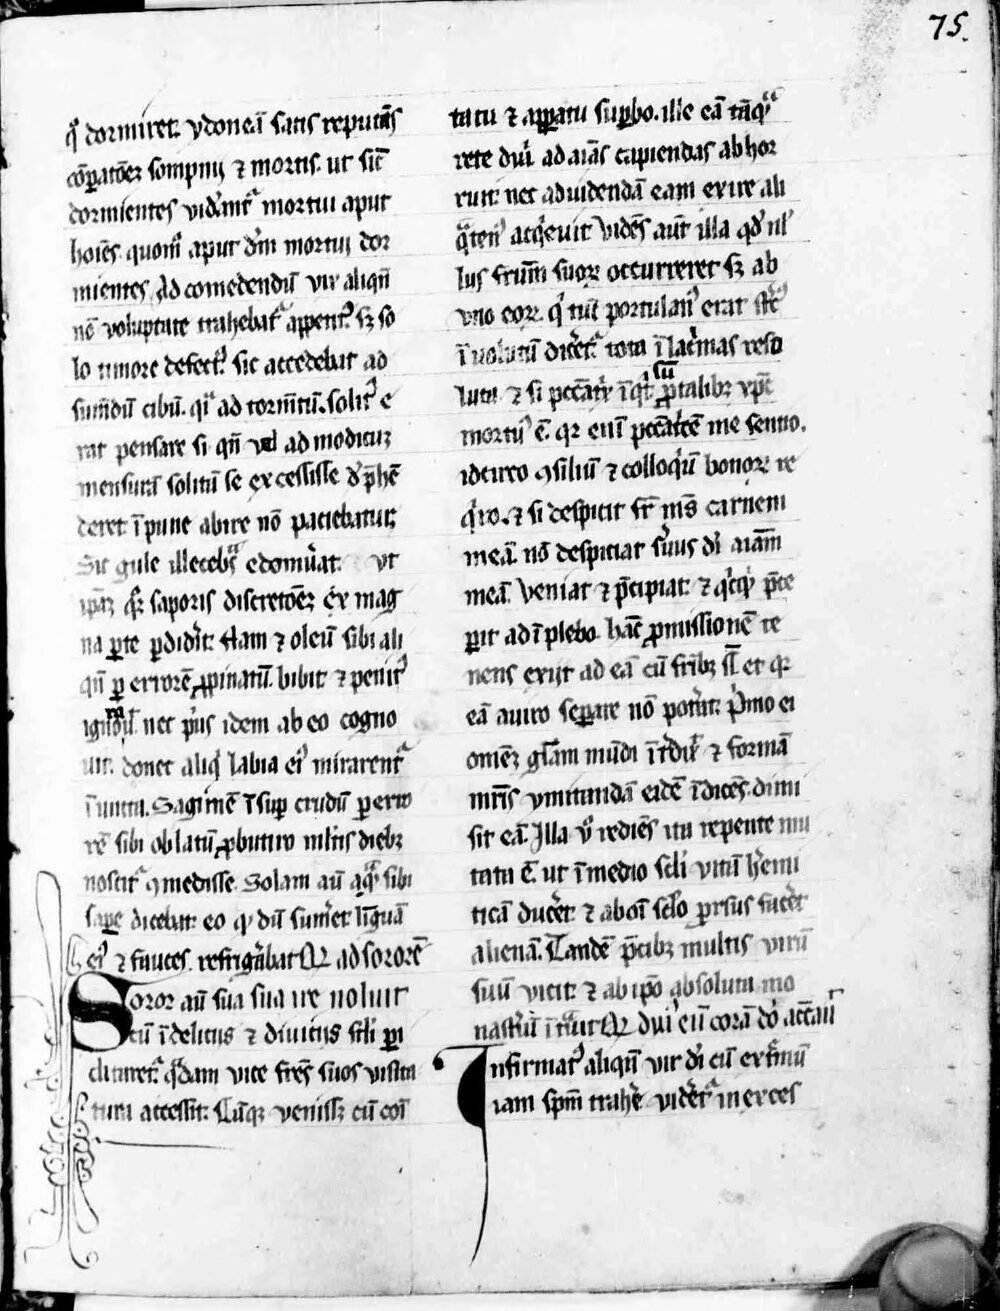 75.
qͦ dormiret. ydoneā satis reputās
cōparatōeꝫ sompnij ⁊ mortis. ut sic̄
dormientes vident᷑ mortui aput
hoīes. quom̄ aput dm̄ mortui dor
mientes. Ad comedendū vix aliqn̄
nō voluptate trahebat᷑ appetitꝰ sꝫ so
lo timore defectꝰ. sic accedebat ad
sumēdū cibū. qͥ ad tormētū. solitꝰ e
rat pensare si qn̄ vel ad modicuꝫ
mensurā solitū se excessisse dep̄hē
deret īpune abire nō paciebatur.
Sic gule illecebᵃs edomuat. ut
ip̄aꝫ qͦꝫ saporis discretōeꝫ ex mag
na ꝑte ꝑdidit. Nam ⁊ oleū sibi ali
qn̄ ꝑ errorē ꝓpinatū. bibit ⁊ penitꝰ
ignorauit. nec pͥus idem ab eo cogno
uit. donec aliqͥ labia eiꝰ mirarent᷑
īuncta. Sagimē īsuꝑ crudū ꝑ erro
rē sibi oblatū ꝓ butiro mltis diebꝫ
noscit᷑ ꝯmedisse. Solam aū aquā sibi
saꝑe dicebat. eo qꝫ dū sumet līguā
eiꝰ ⁊ fauces refrigabat. Qꝛ ad sororē
Soror aū sua sua ne noluit
cū ī deliciis ⁊ diuiciis scli ꝑi
clitaret᷑ qᵃdam vice fres suos visita
tura accessit. Cūqꝫ venissꝫ cū comi
tatu ⁊ apparatu suꝑbo. ille eā tāqᵃ
rete dyͥ. ad aīas capiendas abhor
ruit. nec ad uidendā eam exire ali
qᵃtenꝰ acqͥeuit. Vidēs aūt illa qd̓ nl
lus frum suoꝝ occurreret sꝫ ab
vno eoꝝ. qͥ tūc portulariꝰ erat stercꝰ
īuolutū dicet᷑. tota ī lacͥmas reso
luta ⁊ si pcc̄atͥx īqͥt sū ꝓ talibꝫ xp̄c
mortuꝰ ē. qꝛ eniī pcc̄atͥcē me sentio.
idcirco ꝯsiliū ⁊ colloqͥū bonoꝝ re
qͥro. ⁊ si despicit fr̄ ms̄ carnem
meā. nō despiciat suus di aīam
meā. Veniat ⁊ p̄cipiat. ⁊ qͥcqͥd p̄ce
ꝑit adīplebo. hāc ꝓmissionē te
nens exijt ad eā cū frībꝫ suis et qꝛ
eā a uiro seꝑare nō poat. pͥmo ei
omēꝫ glam mūdi ītdix̄ ⁊ formā
mr̄is ymitandā eidē īdicēs. dimi
sit eā. Illa vͦ rediēs ita repente mu
tata ē. ut ī medio scli vitā hemi
ticā ducet. ⁊ ab oī sclo ꝓrsus facet
alienā. Tandē p̄cibꝫ multis virū
suū vicit. ⁊ ab ip̄o absoluta mo
nastiū ītᵃuit. Qꝛ dyͥ eū corā do accai
Infirmatꝰ aliqn̄ vir di cū extmū
iam spm̄ trahe videt᷑ in exces